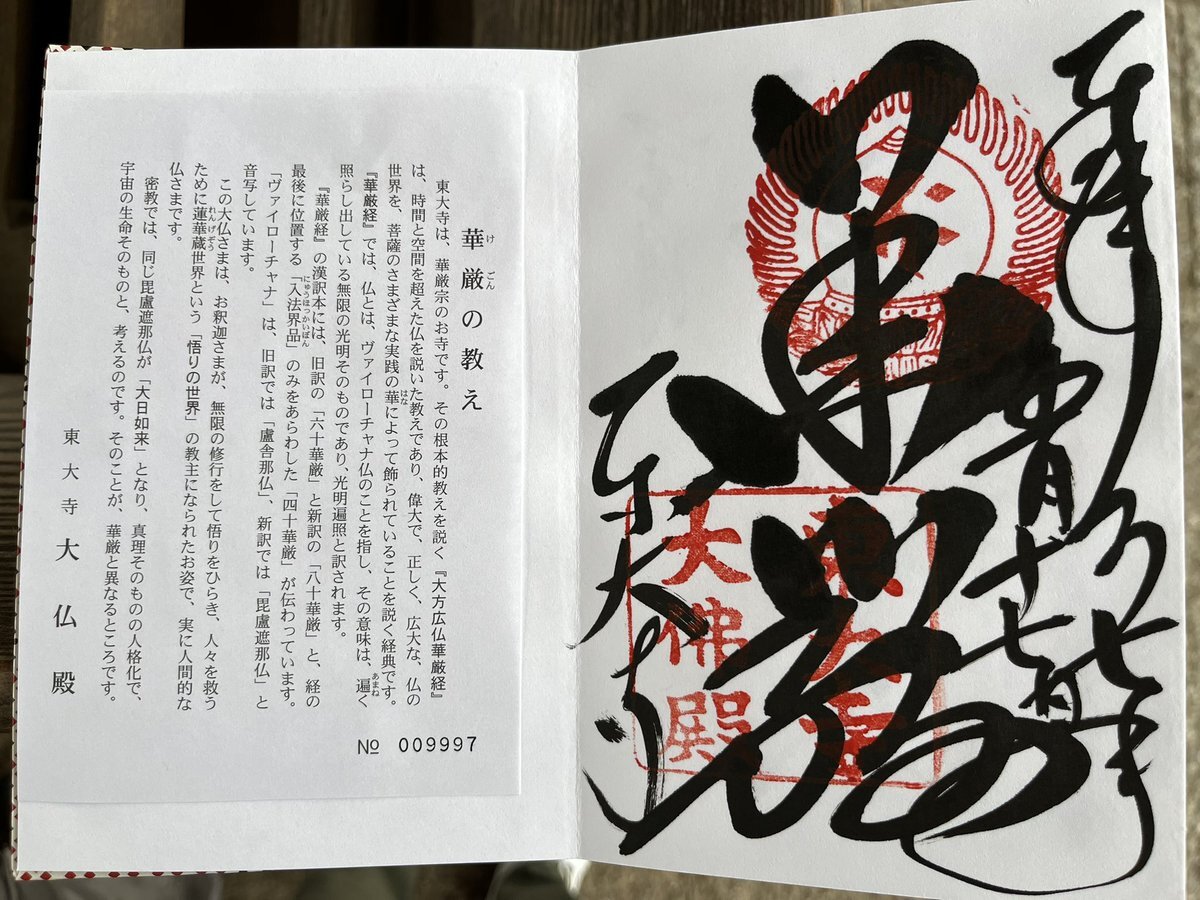 奉拝
令和七年
月十七日
華厳
東大寺
大佛殿
東大寺
華厳の教え
東大寺は、華厳宗のお寺です。その根本的教えを説く『大方広仏華厳経』
は、時間と空間を超えた仏を説いた教えであり、偉大で、正しく、広大な、仏の
世界を、菩薩のさまざまな実践の華によって飾られていることを説く経典です。
『華厳経』では、仏とは、ヴァイローチャナ仏のことを指し、その意味は、遍く
照らし出している無限の光明そのものであり、光明遍照と訳されます。
『華厳経』の漢訳本には、旧訳の「六十華厳」と新訳の「八十華厳」と、経の
最後に位置する「入法界品」のみをあらわした「四十華厳」が伝わっています。
「ヴァイローチャナ」は、旧訳では「盧舎那仏」、新訳では「毘盧遮那仏」と
音写しています。
この大仏さまは、お釈迦さまが、無限の修行をして悟りをひらき、人々を救う
ために蓮華蔵世界という「悟りの世界」の教主になられたお姿で、実に人間的な
仏さまです。
密教では、同じ毘盧遮那仏が「大日如来」となり、真理そのものの人格化で、
宇宙の生命そのものと、考えるのです。そのことが、華厳と異なるところです。
東大寺 大仏殿
№ 009997